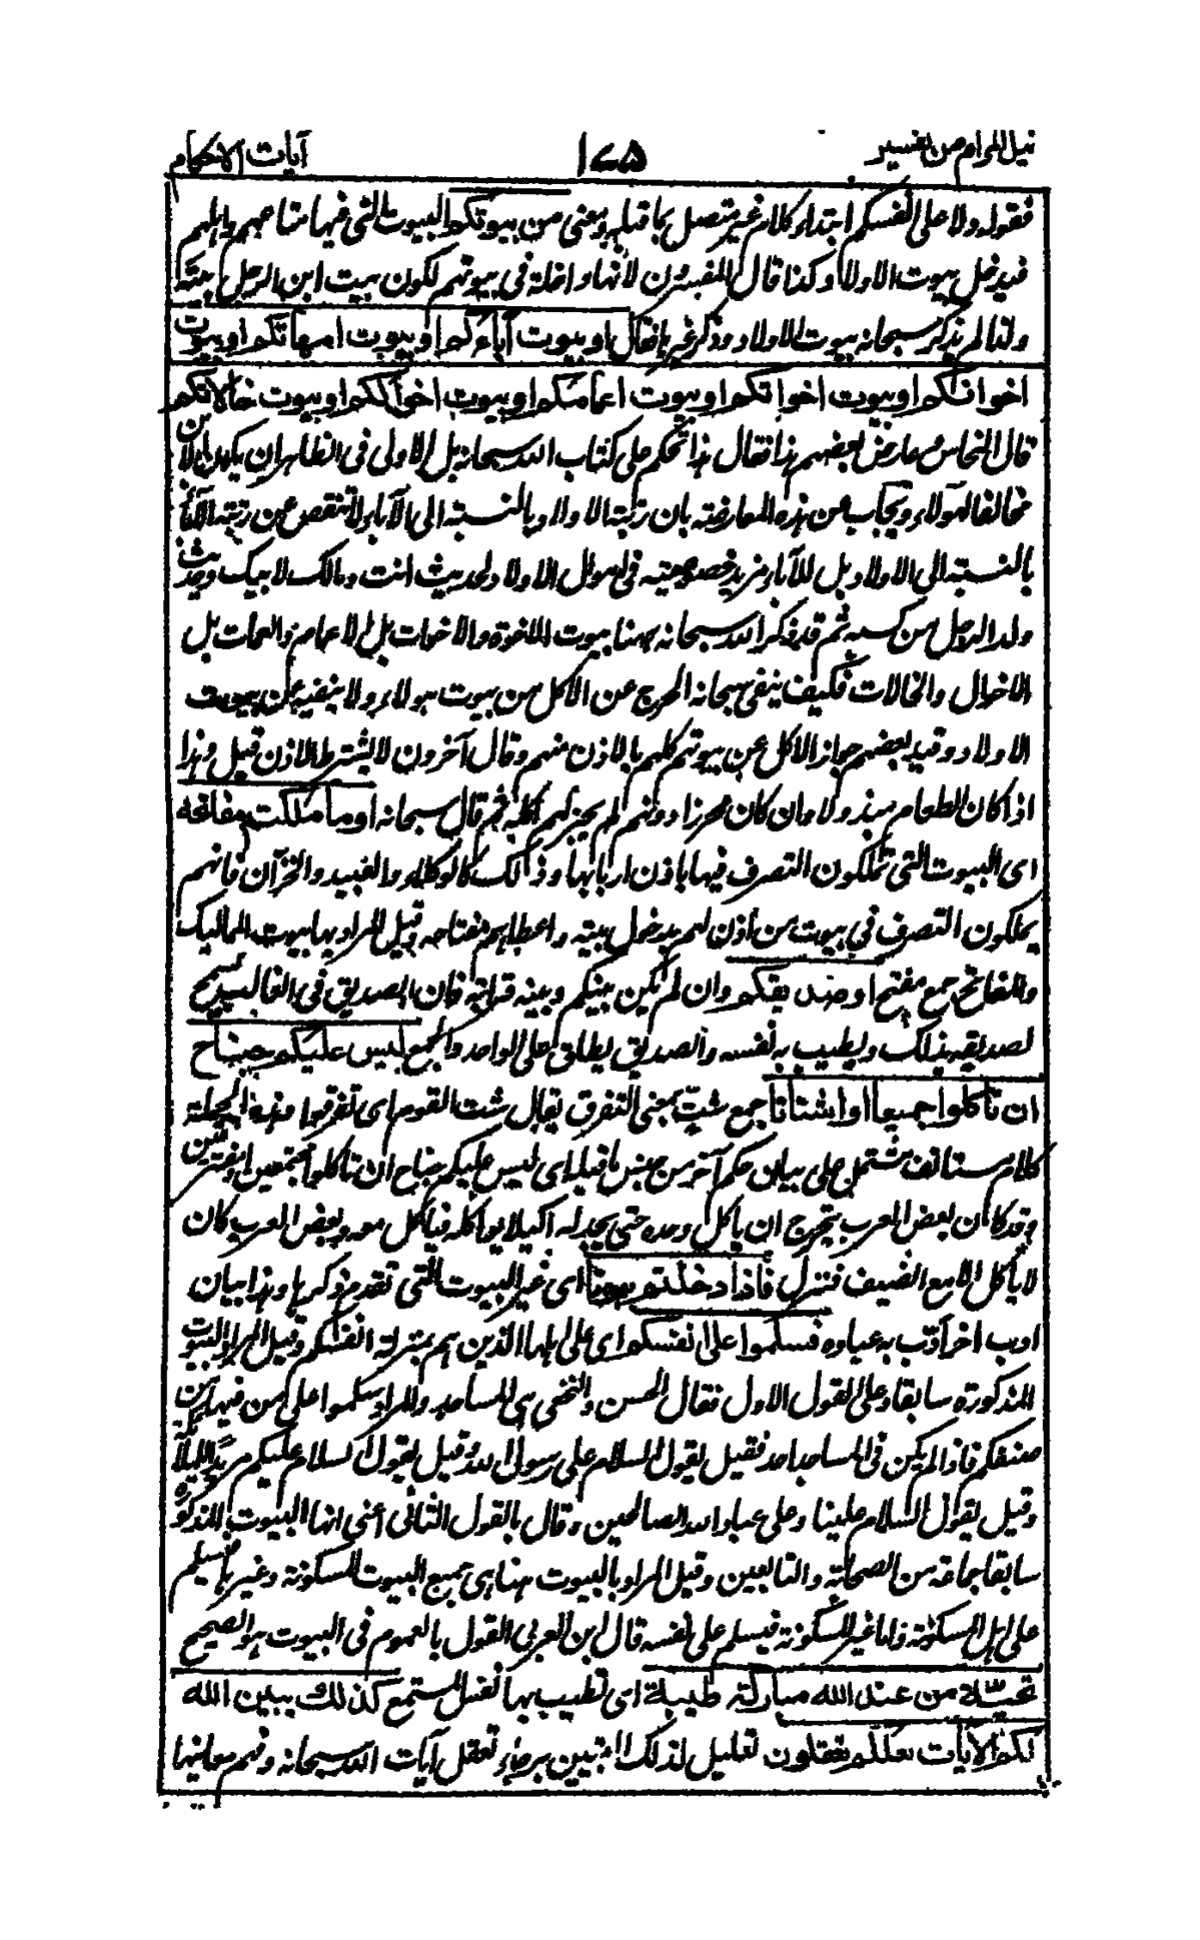 نيل المرام من تفسير ١٧٥ آيات الاحكام
فقوله ولا على انفسكم ابتداء كلام غير متصل بما قبله ومعنى من بيوتكم البيوت التى فيها متاعهم واهلهم
فيدخل بيوت الاولاد كذا قال المفسرون لانها داخلة فى بيوتهم لكون بيت ابن الرجل بيته
ولذا لم يذكر سبحانه بيوت الاولاد وذكر غيرها فقال او بيوت آبائكم او بيوت امهاتكم او بيوت
اخوانكم او بيوت اخواتكم او بيوت اعمامكم او بيوت اخوالكم او بيوت خالاتكم
قال النحاس وعارض بعضهم هذا فقال هذا تحكم على كتاب الله سبحانه بل الاولى فى الظاهر ان يكون الابن
مخالفا لهؤلاء ويجاب عن هذه المعارضة بان رتبة الاولاد بالنسبة الى الآباء لا تنقص عن رتبة الآباء
بالنسبة الى الاولاد بل للآباء مزيد خصوصية فى اموال الاولاد لحديث انت ومالك لابيك وحديث
ولد الرجل من كسبه ثم قد ذكر الله سبحانه ههنا بيوت الاخوة والاخوات بل الاعمام والعمات بل
الاخوال والخالات فكيف ينفى سبحانه الحرج عن الاكل من بيوت هؤلاء ولا ينفيه عن بيوت
الاولاد وقيد بعضهم جواز الاكل عن بيوتهم كلهم بالاذن منهم وقال آخرون لا يشترط الاذن قيل وهذا
اذا كان الطعام مبذولا وان كان محرزا دونهم لم يجز لهم اكله ثم قال سبحانه او ما ملكت مفاتحه
اى البيوت التى تملكون التصرف فيها باذن اربابها وذلك كالوكلاء والعبيد والخزان فانهم
يملكون التصرف فى بيوت من اذن لهم بدخول بيته واعطاهم مفتاحه وقيل المراد بها بيوت المماليك
والمفاتح جمع مفتح او صديقكم وان لم يكن بينكم وبينه قرابة فان الصديق فى الغالب يسمح
لصديقه بذلك ويطيب به نفسه والصديق يطلق على الواحد والجمع ليس عليكم جناح
ان تاكلوا جميعا او اشتاتا جمع شت بمعنى التفرق يقال شت القوم اى تفرقوا وهذه الجملة
كلام مستانف مشتمل على بيان حكم آخر من جنس ما قبله اى ليس عليكم جناح ان تاكلوا مجتمعين او متفرقين
وقد كان بعض العرب يتحرج ان ياكل وحده حتى يجد له اكيلا يواكله فياكل معه وبعض العرب كان
لا ياكل الا مع الضيف فنزل فاذا دخلتم بيوتا اى غير البيوت التى تقدم ذكرها وهذا بيان
ادب اخر ادّب به عباده فسلموا على انفسكم اى على اهلها الذين هم بمنزلة انفسكم وقيل المراد البيوت
المذكورة سابقا وعلى القول الاول فقال الحسن والنخعى هى المساجد والمراد سلموا على من فيها من
صنفكم فاذا لم يكن فى المساجد احد فقيل يقول السلام على رسول الله وقيل يقول السلام عليكم مريدا للملائكة
وقيل يقول السلام علينا وعلى عباد الله الصالحين وقال بالقول الثانى اعنى انها البيوت المذكورة
سابقا جماعة من الصحابة والتابعين وقيل المراد بالبيوت هنا هى جميع البيوت المسكونة وغيرها فيسلم
على اهل المسكونة واما غير المسكونة فيسلم على نفسه قال ابن العربى القول بالعموم فى البيوت هو الصحيح
تحية من عند الله مباركة طيبة اى تطيب بها نفس المستمع كذلك يبين الله
لكم الآيات لعلكم تعقلون تعليل لذلك التبيين برجاء تعقل آيات الله سبحانه وفهم معانيها